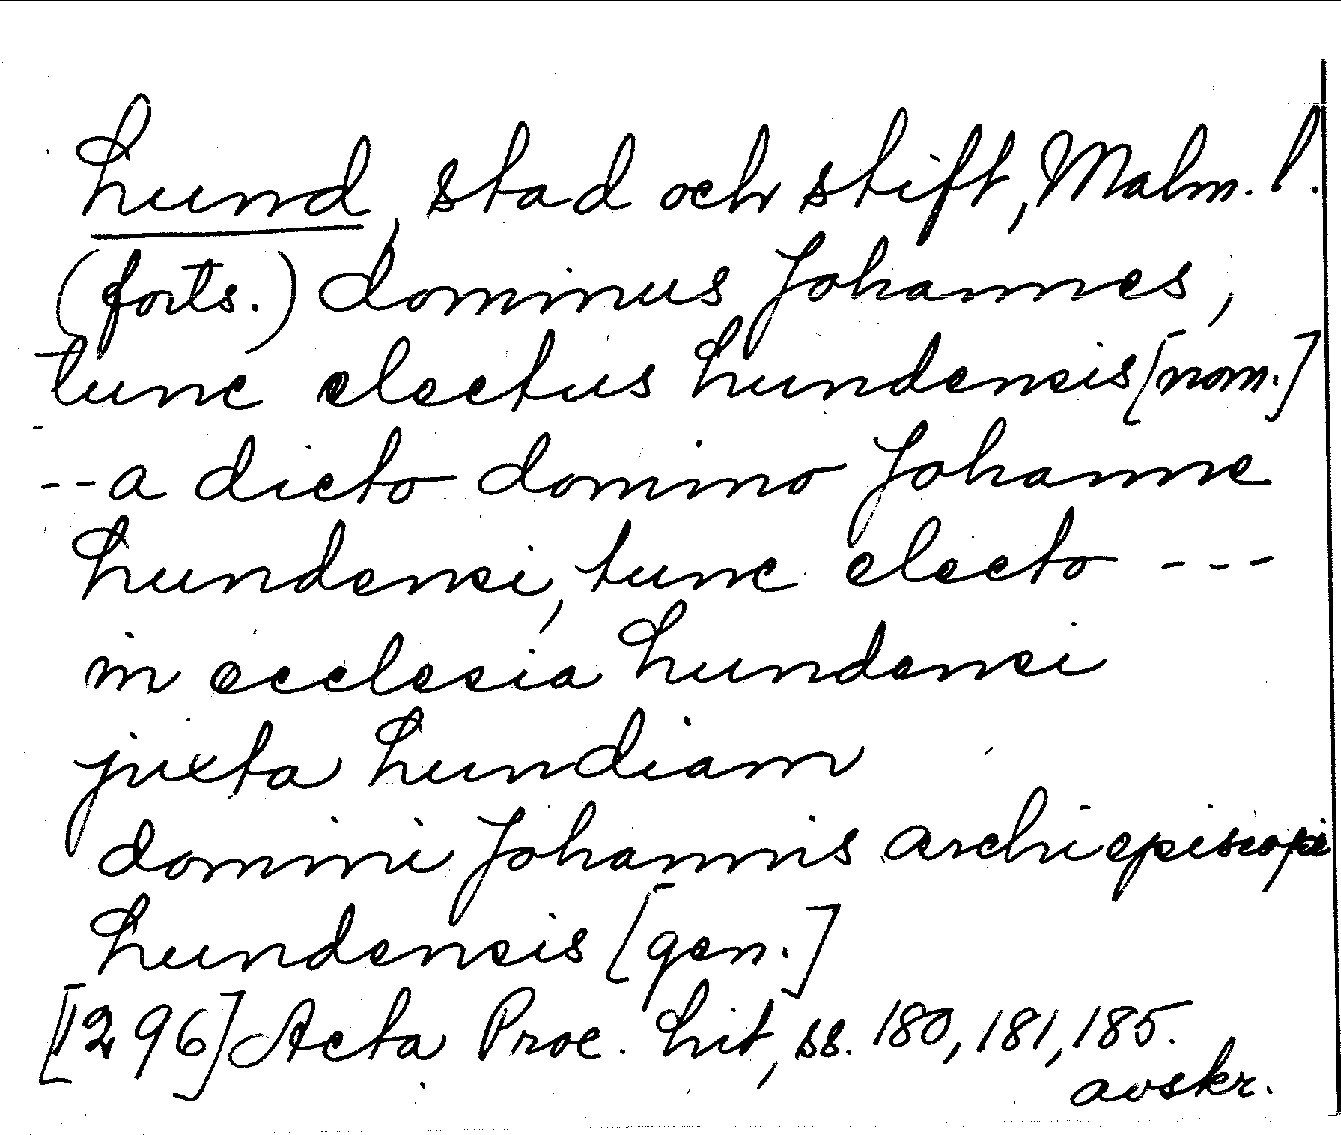 Lund, stad och stift, Malm. l.
(forts.) dominus Johannes,
tunc electus Lundensis [nom.]
-- a dicto domino Johanne
Lundensi, tunc electo ---
in ecclesia Lundensi
juxta Lundiam
domini Johannis archiepiscopi
Lundensis [gen.]
[1296] Acta Proc. Lit, ss. 180, 181, 185.
avskr.